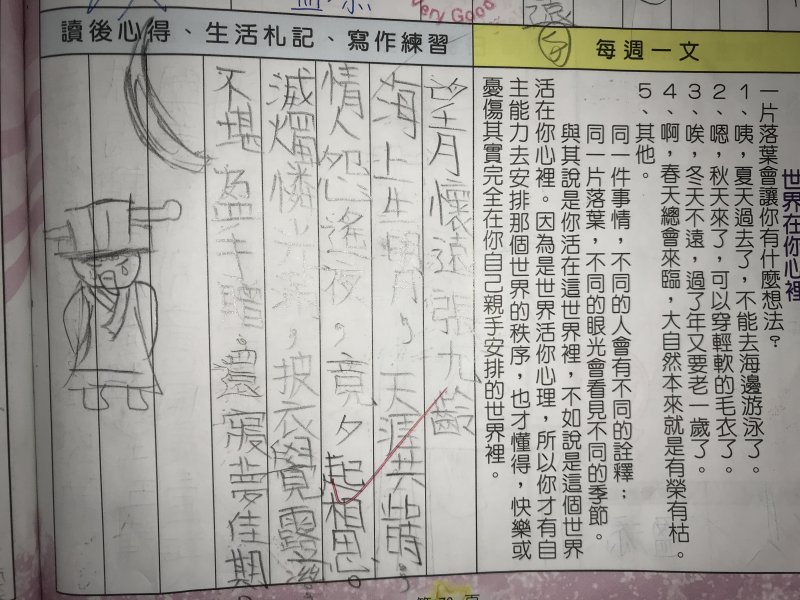 Very Good
每週一文
世界在你心裡
一片落葉會讓你有什麼想法？
1、咦，夏天過去了，不能去海邊游泳了。
2、嗯，秋天來了，可以穿輕軟的毛衣了。
3、唉，冬天不遠，過了年又要老一歲了。
4、啊，春天總會來臨，大自然本來就是有榮有枯。
5、其他。
同一件事情，不同的人會有不同的詮釋；
同一片落葉，不同的眼光會看見不同的季節。
與其說是你活在這世界裡，不如說是這個世界
活在你心裡。因為是世界活你心理，所以你才有自
主能力去安排那個世界的秩序，也才懂得，快樂或
憂傷其實完全在你自己親手安排的世界裡。
讀後心得、生活札記、寫作練習
望月懷遠 張九齡
海上生明月，天涯共此時，
情人怨遙夜，竟夕起相思。
滅燭憐光滿，披衣覺露滋
不堪盈手贈。還寢夢佳期。